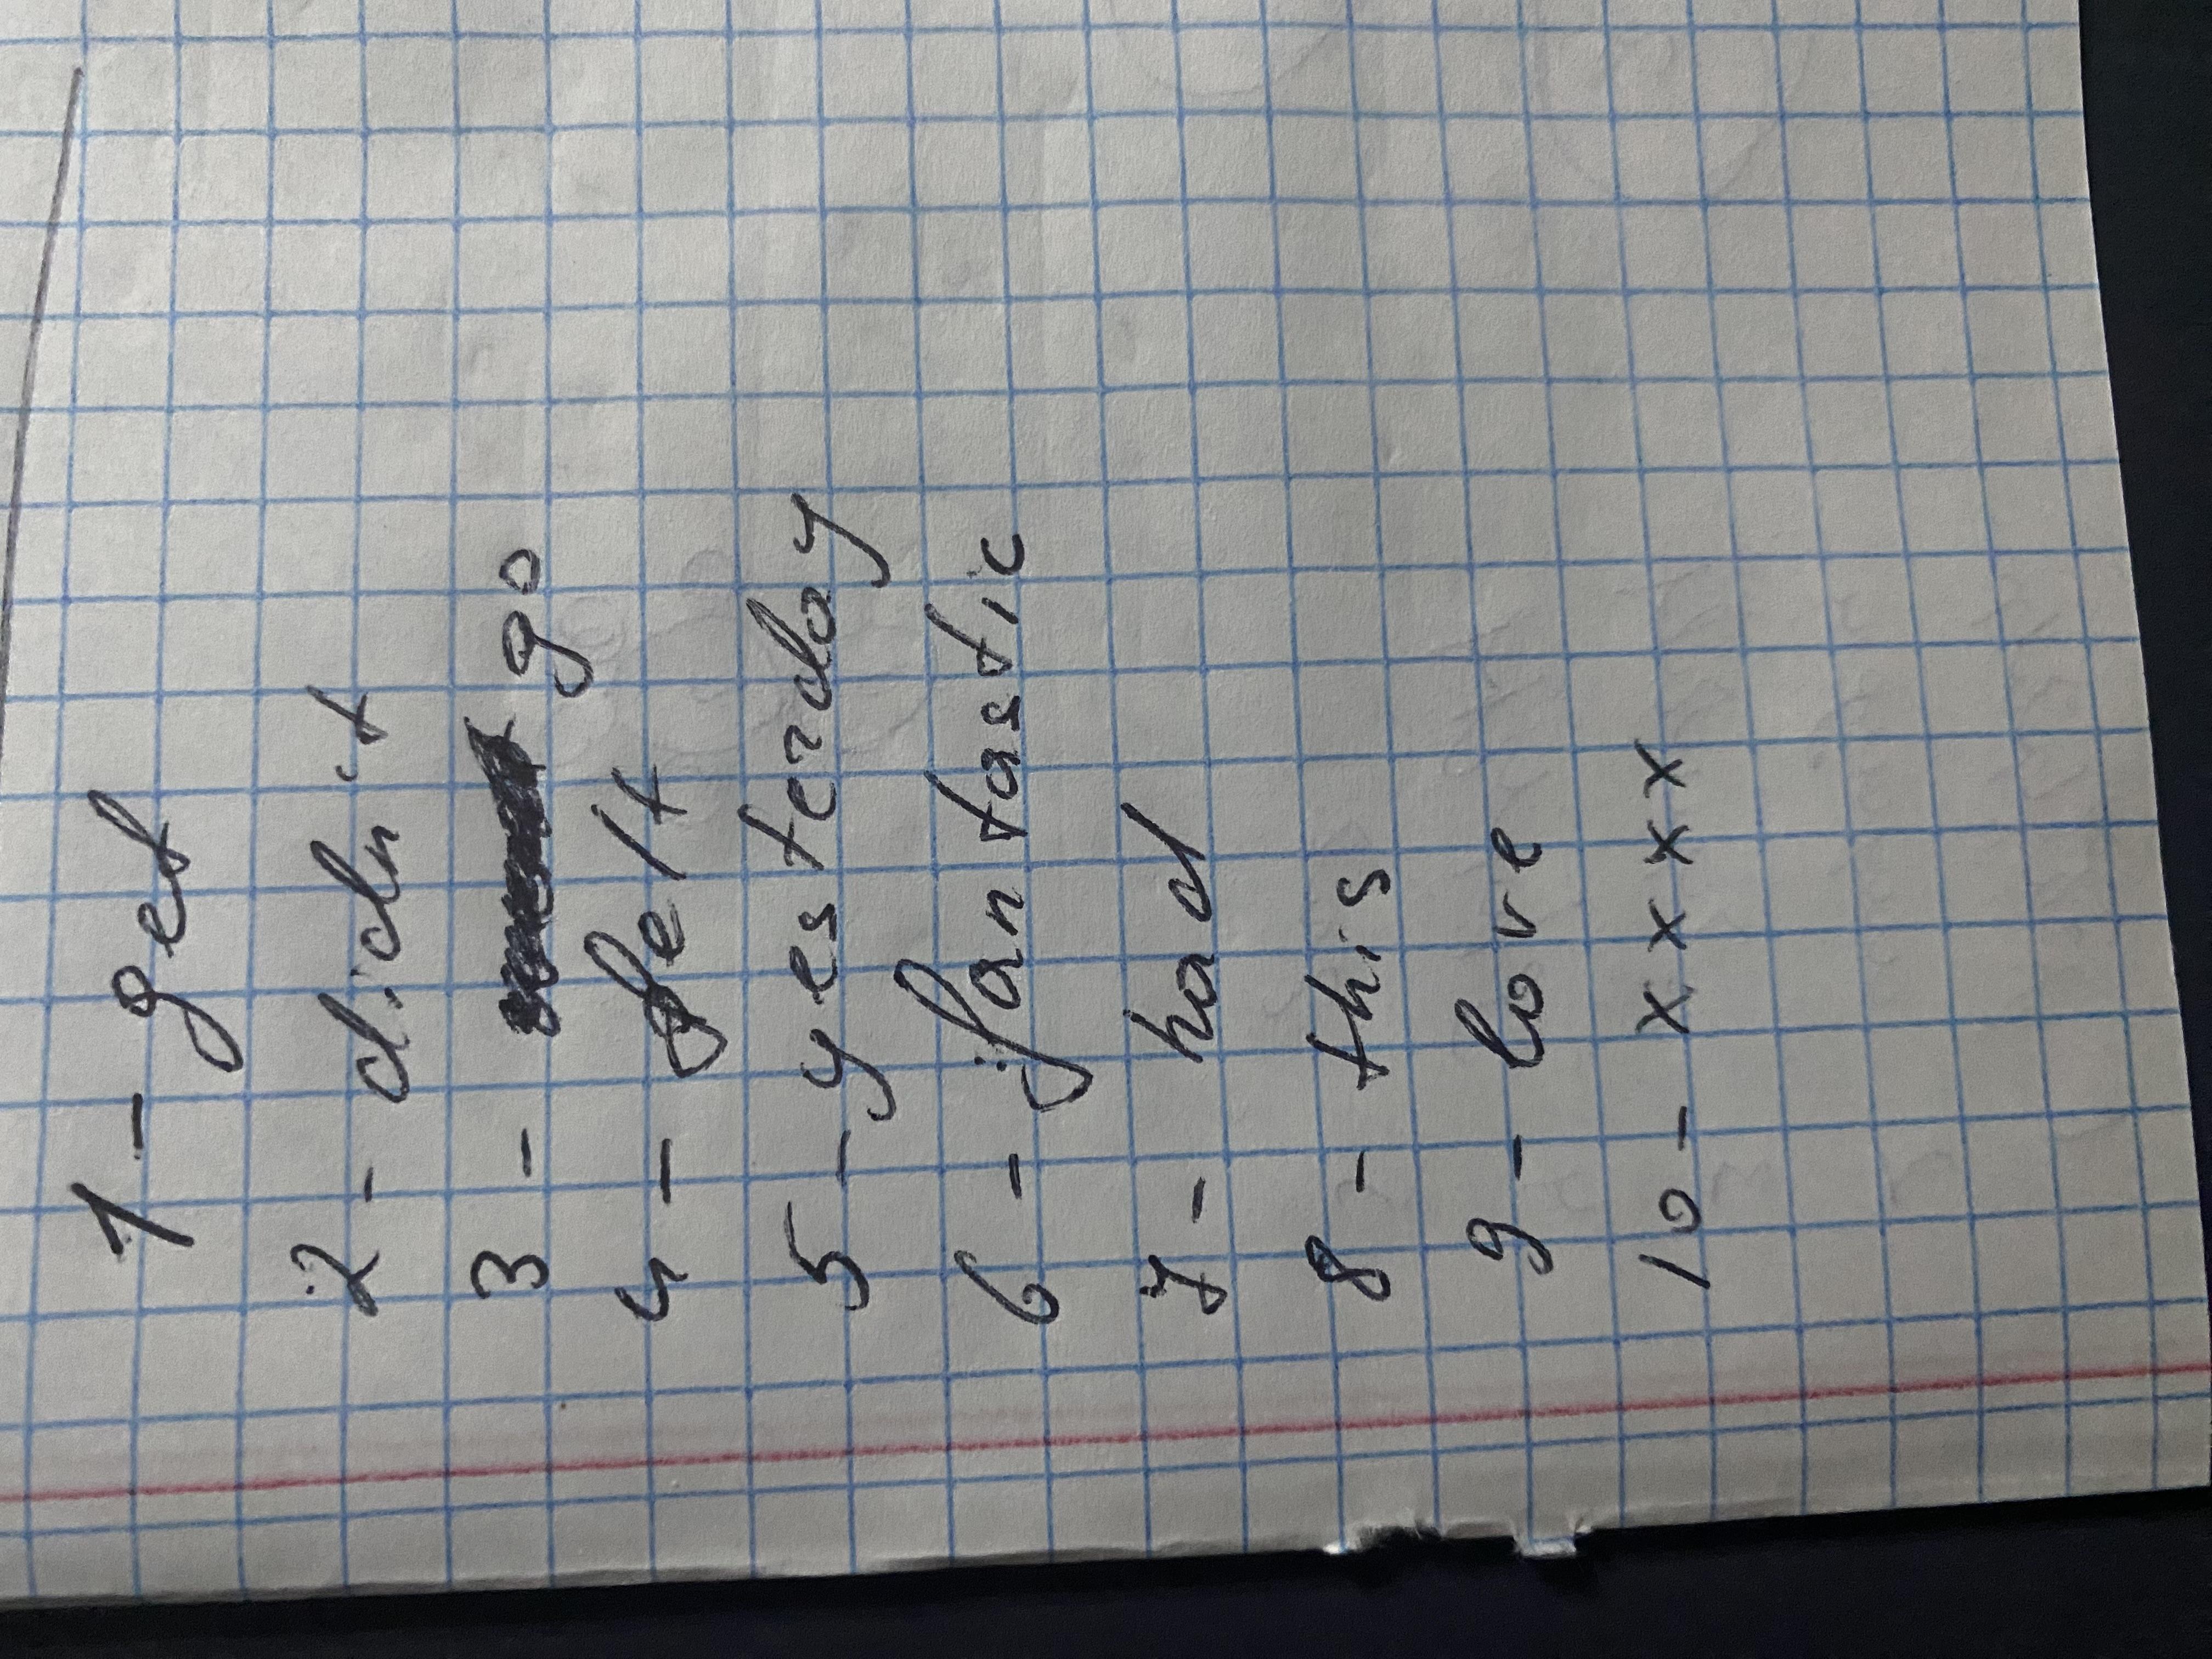 1 - get
2 - didn't
3 - go
4 - felt
5 - yesterday
6 - fantastic
7 - had
8 - this
9 - love
10 - x x x x